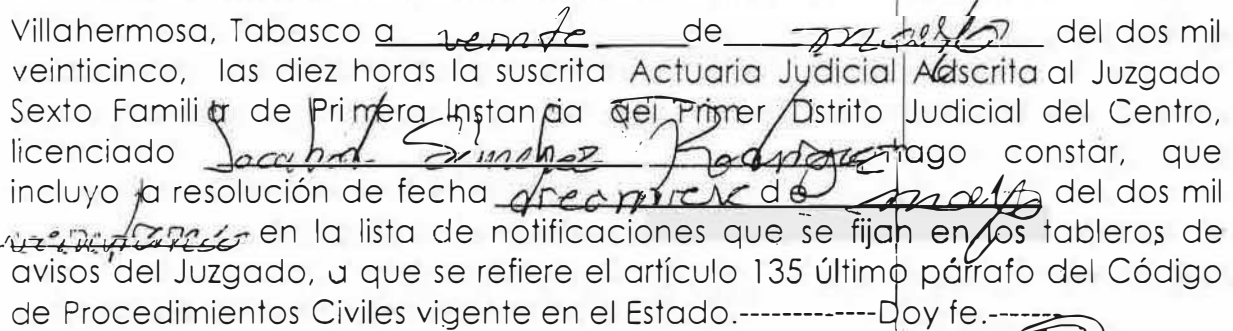 Villahermosa, Tabasco a veinte de marzo del dos mil
veinticinco, las diez horas la suscrita Actuaria Judicial Adscrita al Juzgado
Sexto Familiar de Primera Instancia del Primer Dstrito Judicial del Centro,
licenciado Sanchez Rodriguez hago constar, que
incluyo la resolución de fecha diecinueve de marzo del dos mil
veinticinco en la lista de notificaciones que se fijan en los tableros de
avisos del Juzgado, a que se refiere el artículo 135 último párrafo del Código
de Procedimientos Civiles vigente en el Estado.-------------Doy fe.-------